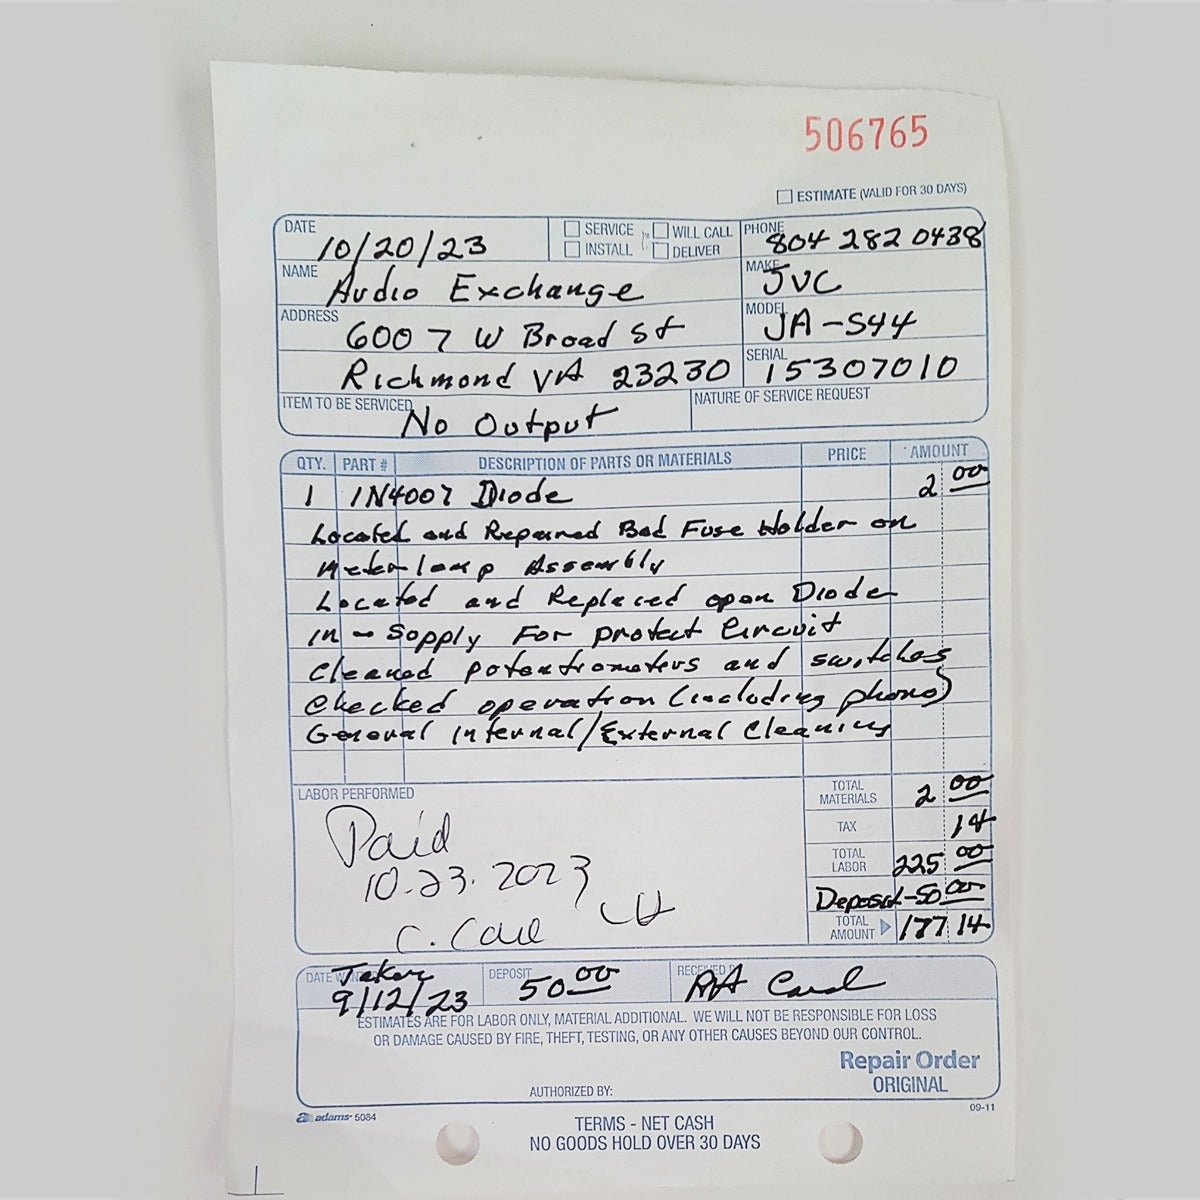 506765
☐ ESTIMATE (VALID FOR 30 DAYS)
DATE 10/20/23 ☐ SERVICE ☐ WILL CALL PHONE 804 282 0438
☐ INSTALL ☐ DELIVER
NAME Audio Exchange MAKE JVC
ADDRESS 6007 W Broad St MODEL JA-S44
Richmond VA 23230 SERIAL 15307010
ITEM TO BE SERVICED No Output NATURE OF SERVICE REQUEST
QTY. PART # DESCRIPTION OF PARTS OR MATERIALS PRICE AMOUNT
1 1N4007 Diode 2 00
Located and Repaired Bad Fuse Holder on
Meter lamp Assembly
Located and Replaced open Diode
in - Supply For protect Circuit
Cleaned potentiometers and switches
Checked operation (including phono)
General Internal/External Cleaning
LABOR PERFORMED
TOTAL MATERIALS 2 00
TAX 14
TOTAL LABOR 225 00
Deposit -50 00
TOTAL AMOUNT 177 14
Paid
10.23.2023
DATE Taken 9/12/23 DEPOSIT 50 00 RECEIVED Card
ESTIMATES ARE FOR LABOR ONLY, MATERIAL ADDITIONAL. WE WILL NOT BE RESPONSIBLE FOR LOSS
OR DAMAGE CAUSED BY FIRE, THEFT, TESTING, OR ANY OTHER CAUSES BEYOND OUR CONTROL.
Repair Order
ORIGINAL
AUTHORIZED BY:
adams 5084 09-11
TERMS - NET CASH
NO GOODS HOLD OVER 30 DAYS